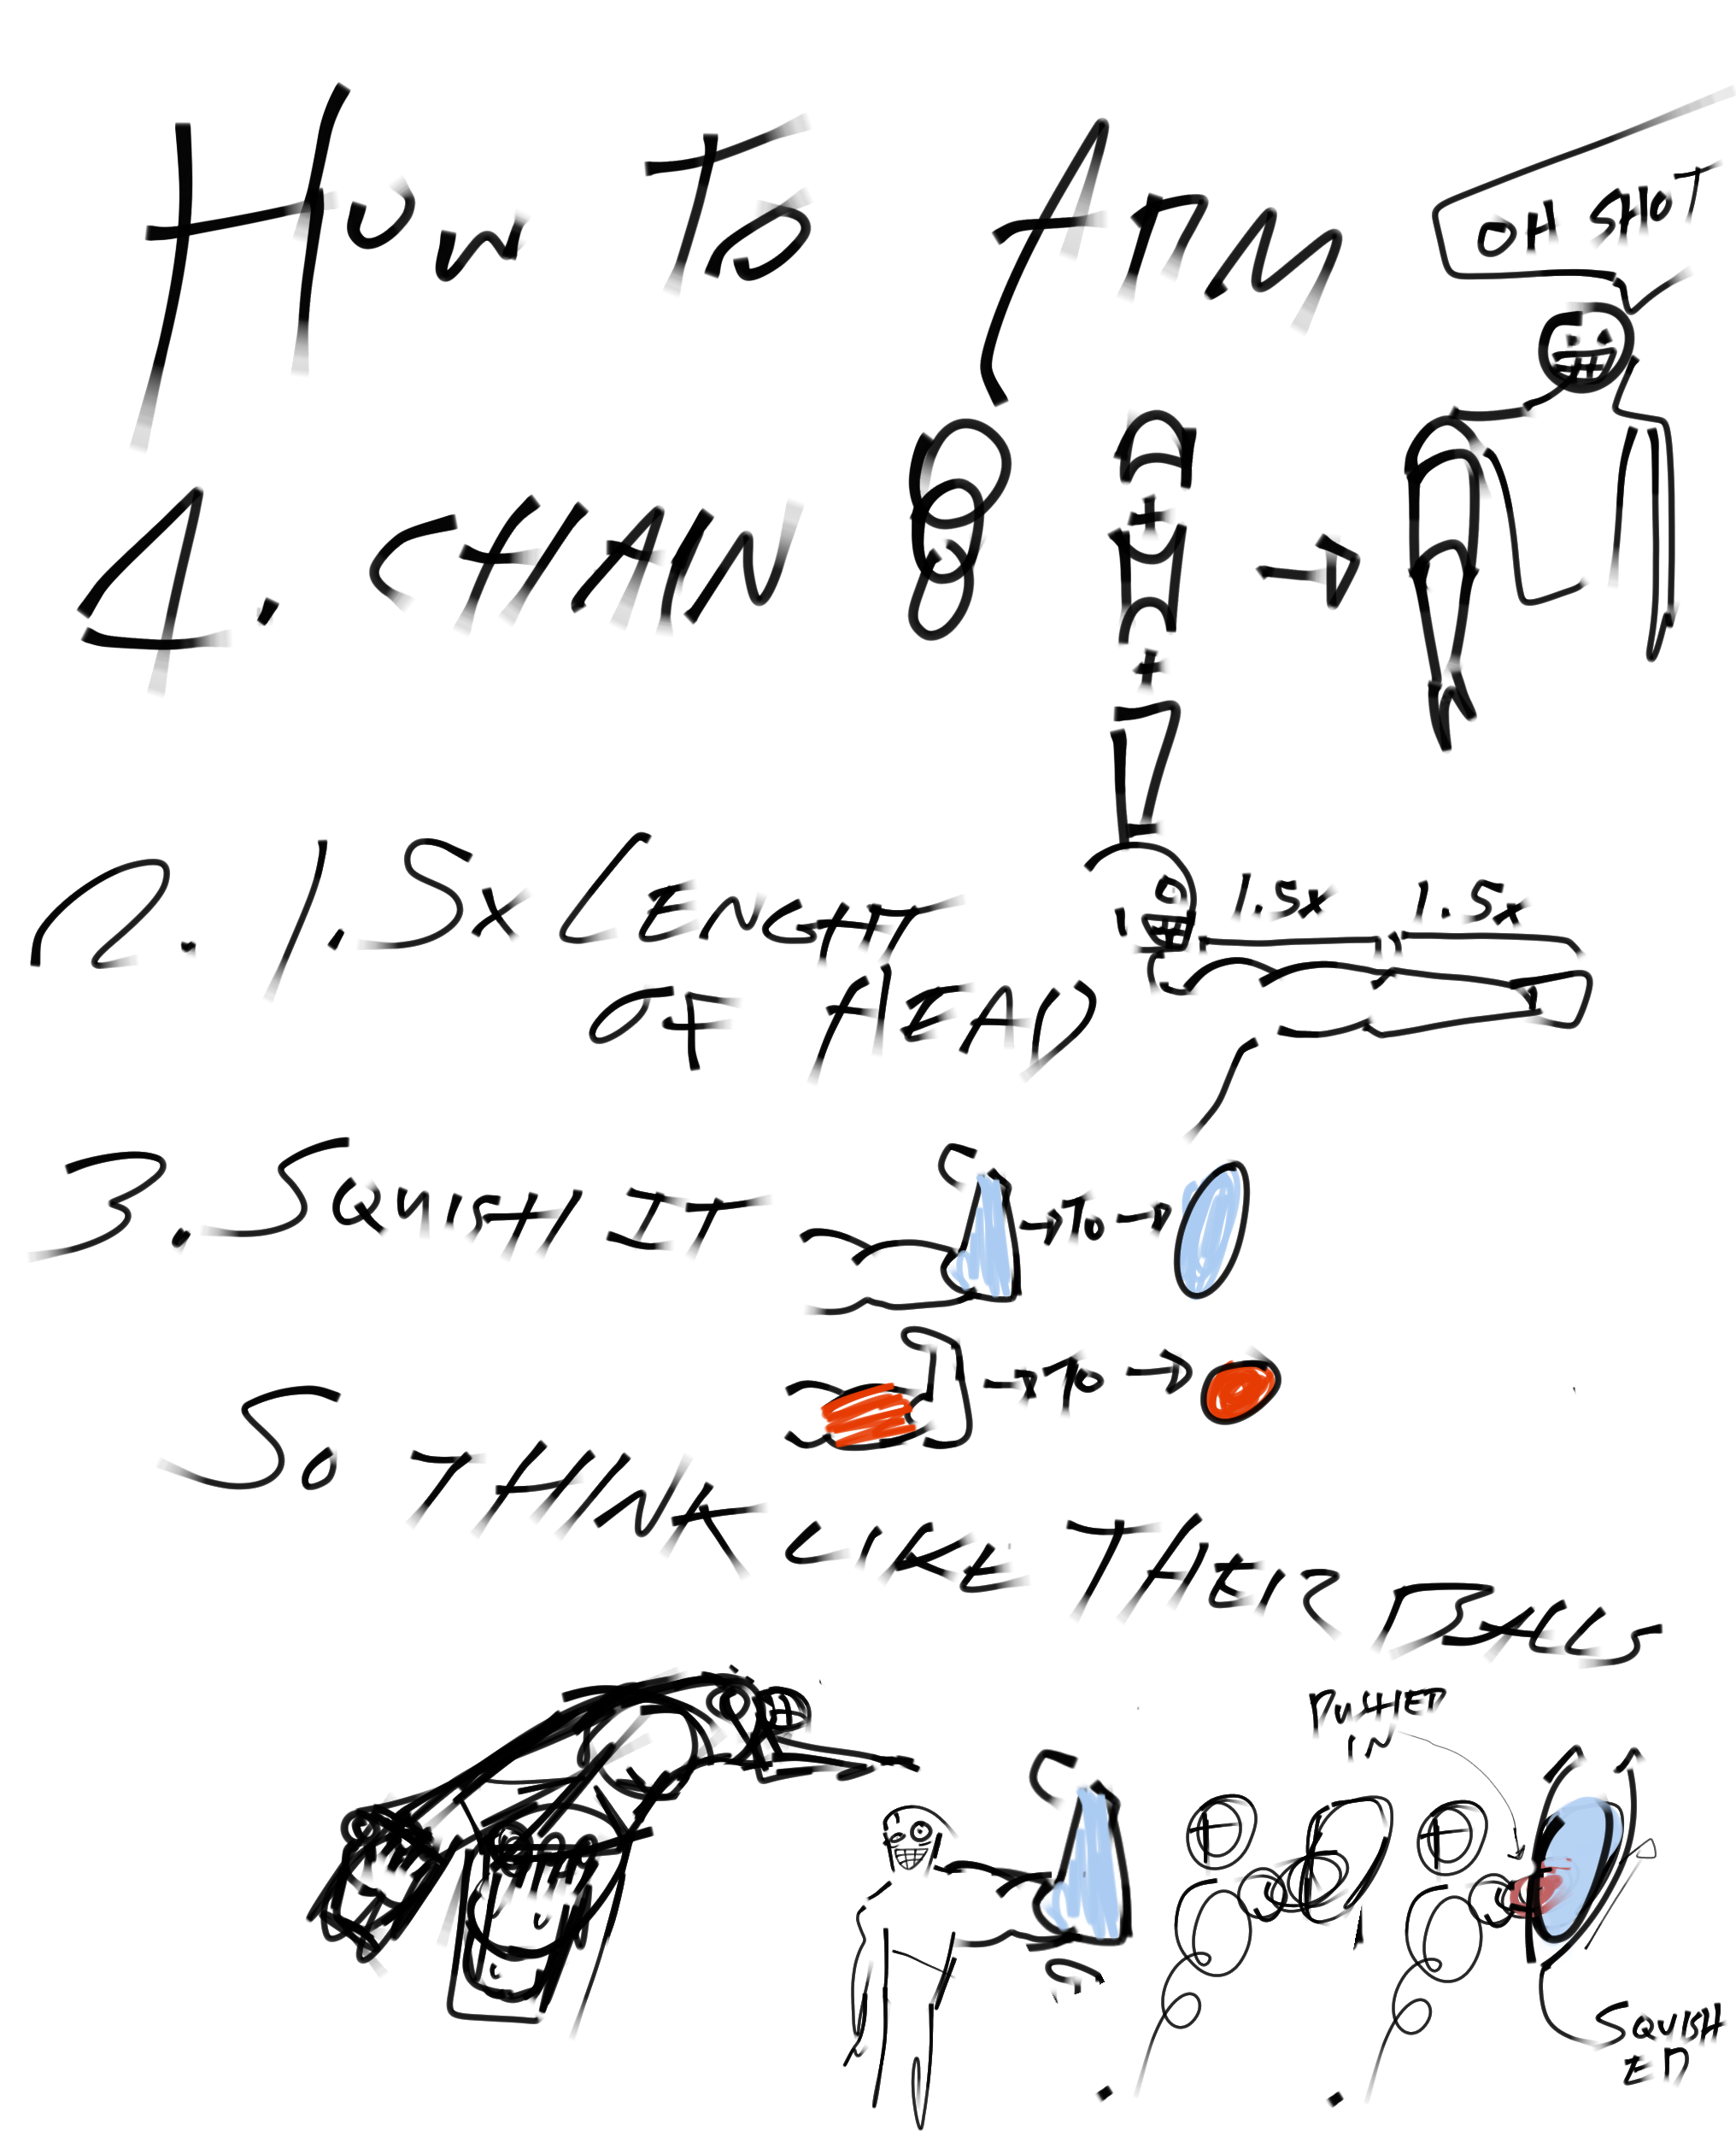 HOW TO ARM
OH SHOT
1. CHAIN
2. 1.5X LENGHT
OF HEAD
1.5x 1.5x
3. SQUISH IT
→ TO →
→ TO →
SO THINK LIKE THEIR BALLS
PUSHED
IN
SQUISH
ED